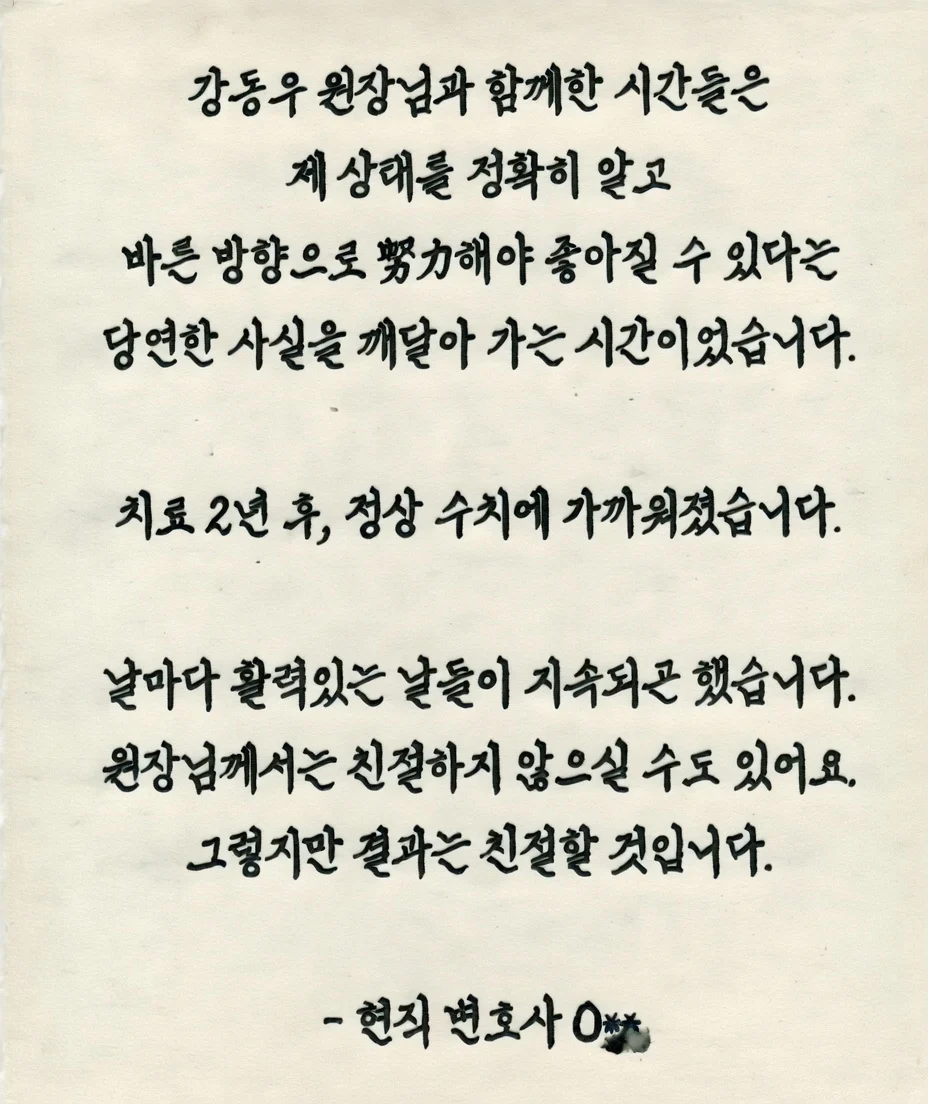 강동우 원장님과 함께한 시간들은
제 상태를 정확히 알고
바른 방향으로 努力해야 좋아질 수 있다는
당연한 사실을 깨달아 가는 시간이었습니다.
치료 2년 후, 정상 수치에 가까워졌습니다.
날마다 활력있는 날들이 지속되곤 했습니다.
원장님께서는 친절하지 않으실 수도 있어요.
그렇지만 결과는 친절할 것입니다.
- 현직 변호사 O**